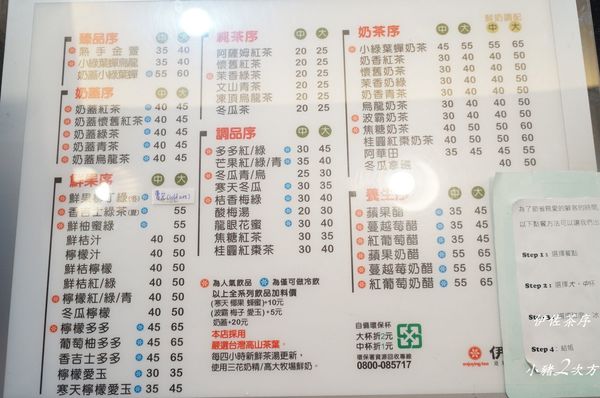 臻品序 中 大
熱手金萱 35 40
小綠葉蟬烏龍 35 40
奶蓋小綠葉蟬 55 60
奶蓋序 中 大
奶蓋紅茶 40 45
奶蓋懷舊紅茶 40 45
奶蓋綠茶 40 45
奶蓋青茶 40 45
奶蓋烏龍茶 40 45
鮮果序 中 大
香吉士綠茶 55
鮮柚蜜綠 55
鮮桔汁 40 50
鮮桔檸檬 40 50
鮮桔紅/綠 40 50
檸檬紅/綠/青 40 50
冬瓜檸檬 40 50
檸檬多多 45 55
葡萄柚多多 45 55
香吉士多多 45 55
檸檬愛玉 30 50
寒天檸檬愛玉 40 60
親茶序 中 大
阿薩姆紅茶 20 25
懷舊紅茶 20 25
茉香綠茶 20 25
文山青茶 20 25
凍頂烏龍茶 20 25
冬瓜茶 20 25
調品序 中 大
多多紅/綠 30 45
芒果紅/綠/青 35 40
冬瓜青/烏 25 30
寒天冬瓜 30 40
桔香梅綠 30 40
酸梅湯 20 30
龍眼花蜜 30 40
焦糖紅茶 30 40
桂圓紅棗茶 30 40
為人氣飲品 為僅可做冷飲
以上全系列飲品加料價
(寒天 椰果 蜂蜜)+10元
(波霸 梅子 愛玉)+5元
奶蓋+20元
本店採用
嚴選台灣高山茶葉。
每四小時新鮮茶湯更新,
使用三花奶精/高大牧場鮮奶。
鮮奶調配
奶茶序 中 大 中 大
小綠葉蟬奶茶 45 55 55 65
奶香紅茶 30 40 40 50
懷舊奶茶 30 40 40 50
茉香奶綠 30 40 40 50
奶香青茶 30 40 40 50
烏龍奶茶 30 40 40 50
波霸奶茶 30 40 40 50
焦糖奶茶 35 50 45 60
桂圓紅棗奶茶 40 50 50 60
阿華田 35 45 45 55
40 50
養生序 中 大
蘋果醋 35 45
蔓越莓醋 35 45
紅葡萄醋 35 45
蘋果奶醋 55 65
蔓越莓奶醋 55 65
紅葡萄奶醋 55 65
自備環保杯
大杯折2元
中杯折1元
環保署資源回收專線
0800-085717
伊
enjoying tea
為了節省親愛的顧客的時間
以下點餐方法可以讓我們出
Step 1:選擇餐點
Step 2:選擇大、中杯
Step 3
冰
Step 4:結帳
伊佐茶序
小豬2次方